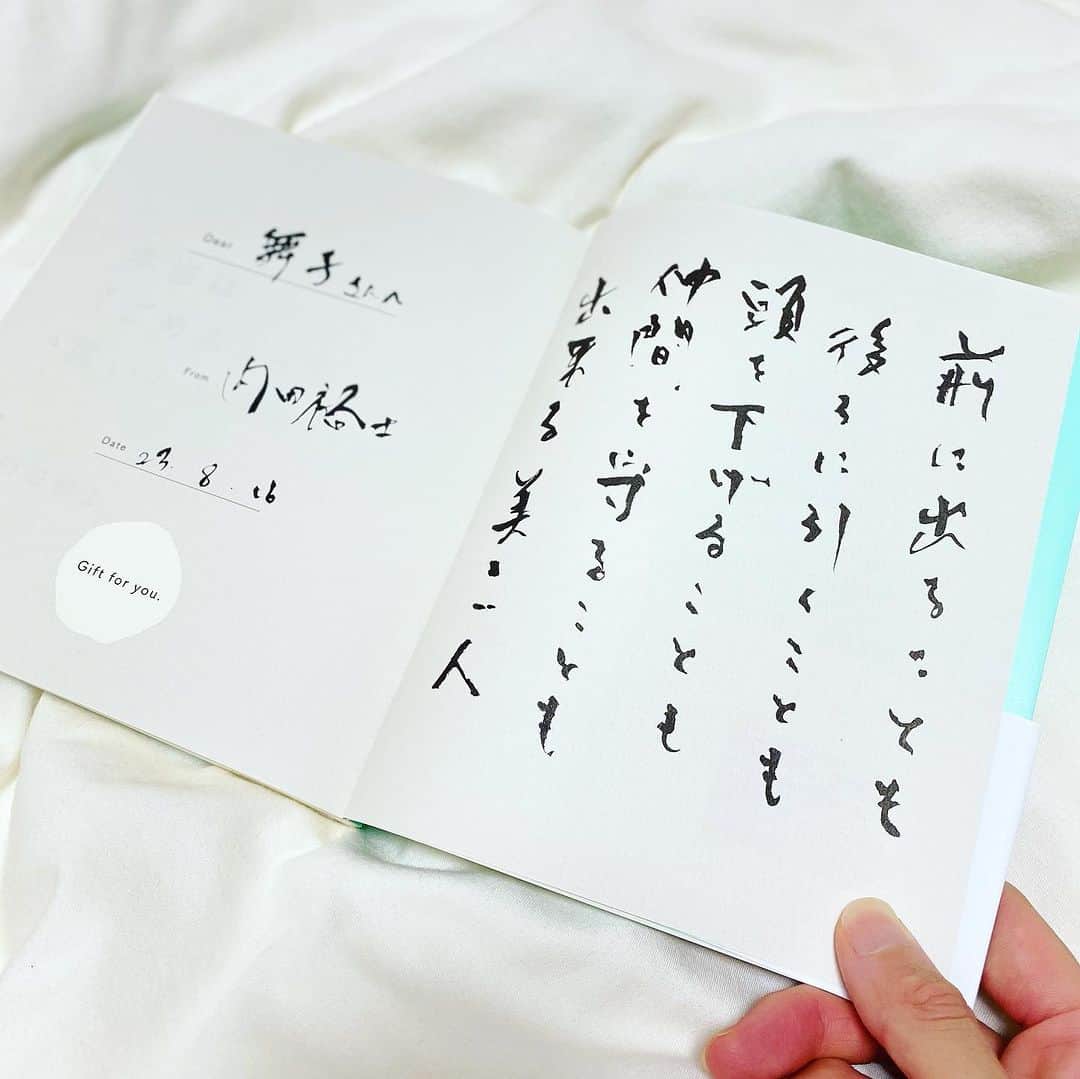 Dear 舞子さんへ
From 内田裕士
Date 23.8.16
Gift for you.
前に出ることも
後ろに引くことも
頭を下げることも
仲間を守ることも
出来る美しい人